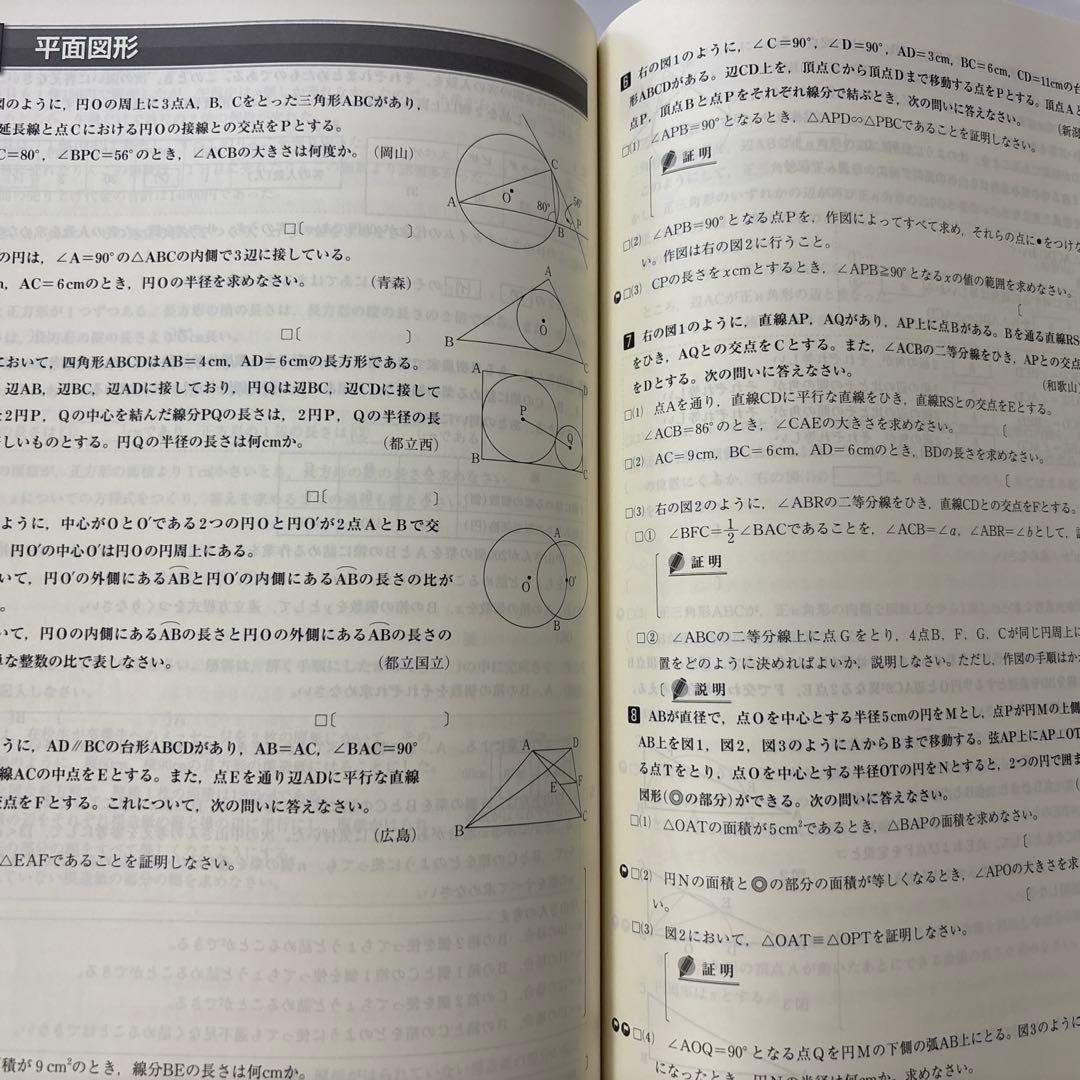 平面図形
図のように，円Oの周上に3点A，B，Cをとった三角形ABCがあり，
延長線と点Cにおける円Oの接線との交点をPとする。
C=80°，∠BPC=56°のとき，∠ACBの大きさは何度か。（岡山）
A
O
C
80°
56°
B
P
□〔　〕
の円は，∠A=90°の△ABCの内側で3辺に接している。
m，AC=6cmのとき，円Oの半径を求めなさい。（青森）
A
O
B
C
□〔　〕
において，四角形ABCDはAB=4cm，AD=6cmの長方形である。
辺AB，辺BC，辺ADに接しており，円Qは辺BC，辺CDに接して
2円P，Qの中心を結んだ線分PQの長さは，2円P，Qの半径の長
しいものとする。円Qの半径の長さは何cmか。（都立西）
A
D
P
Q
B
C
□〔　〕
ように，中心がOとO′である2つの円Oと円O′が2点AとBで交
円O′の中心O′は円Oの円周上にある。
いて，円O′の外側にあるABと円O′の内側にあるABの長さの比が
。
いて，円Oの内側にあるABの長さと円Oの外側にあるABの長さの
単な整数の比で表しなさい。（都立国立）
A
O
O′
B
□〔　〕
うに，AD∥BCの台形ABCDがあり，AB=AC，∠BAC=90°
線ACの中点をEとする。また，点Eを通り辺ADに平行な直線
交点をFとする。これについて，次の問いに答えなさい。
（広島）
A
D
E
F
B
C
△EAFであることを証明しなさい。
積が9cm²のとき，線分BEの長さは何cmか。
6 右の図1のように，∠C=90°，∠D=90°，AD=3cm，BC=6cm，CD=11cmの台
形ABCDがある。辺CD上を，頂点Cから頂点Dまで移動する点をPとする。頂点Aと
点P，頂点Bと点Pをそれぞれ線分で結ぶとき，次の問いに答えなさい。（新潟
□(1) ∠APB=90°となるとき，△APD∽△PBCであることを証明しなさい。
証明
□(2) ∠APB=90°となる点Pを，作図によってすべて求め，それらの点に●をつけな
い。作図は右の図2に行うこと。
□(3) CPの長さをxcmとするとき，∠APB≧90°となるxの値の範囲を求めなさい。
〔
7 右の図1のように，直線AP，AQがあり，AP上に点Bがある。Bを通る直線RS
をひき，AQとの交点をCとする。また，∠ACBの二等分線をひき，APとの交点
をDとする。次の問いに答えなさい。（和歌山
□(1) 点Aを通り，直線CDに平行な直線をひき，直線RSとの交点をEとする。
∠ACB=86°のとき，∠CAEの大きさを求めなさい。〔
□(2) AC=9cm，BC=6cm，AD=6cmのとき，BDの長さを求めなさい。
□(3) 右の図2のように，∠ABRの二等分線をひき，直線CDとの交点をFとする。
□① ∠BFC=1/2∠BACであることを，∠ACB=∠a，∠ABR=∠bとして，
証明
□② ∠ABCの二等分線上に点Gをとり，4点B，F，G，Cが同じ円周上に
置をどのように決めればよいか，説明しなさい。ただし，作図の手順はか
説明
8 ABが直径で，点Oを中心とする半径5cmの円をMとし，点Pが円Mの上側
AB上を図1，図2，図3のようにAからBまで移動する。弦AP上にAP⊥OT
る点Tをとり，点Oを中心とする半径OTの円をNとすると，2つの円で囲ま
図形(◎の部分)ができる。次の問いに答えなさい。（
□(1) △OATの面積が5cm²であるとき，△BAPの面積を求めなさい。
〔
□(2) 円Nの面積と◎の部分の面積が等しくなるとき，∠APOの大きさを求
い。
〔
□(3) 図2において，△OAT≡△OPTを証明しなさい。
証明
□(4) ∠AOQ=90°となる点Qを円Mの下側の弧AB上にとる。図3のように
になったとき，円Nの半径は何cmか。求めなさい。